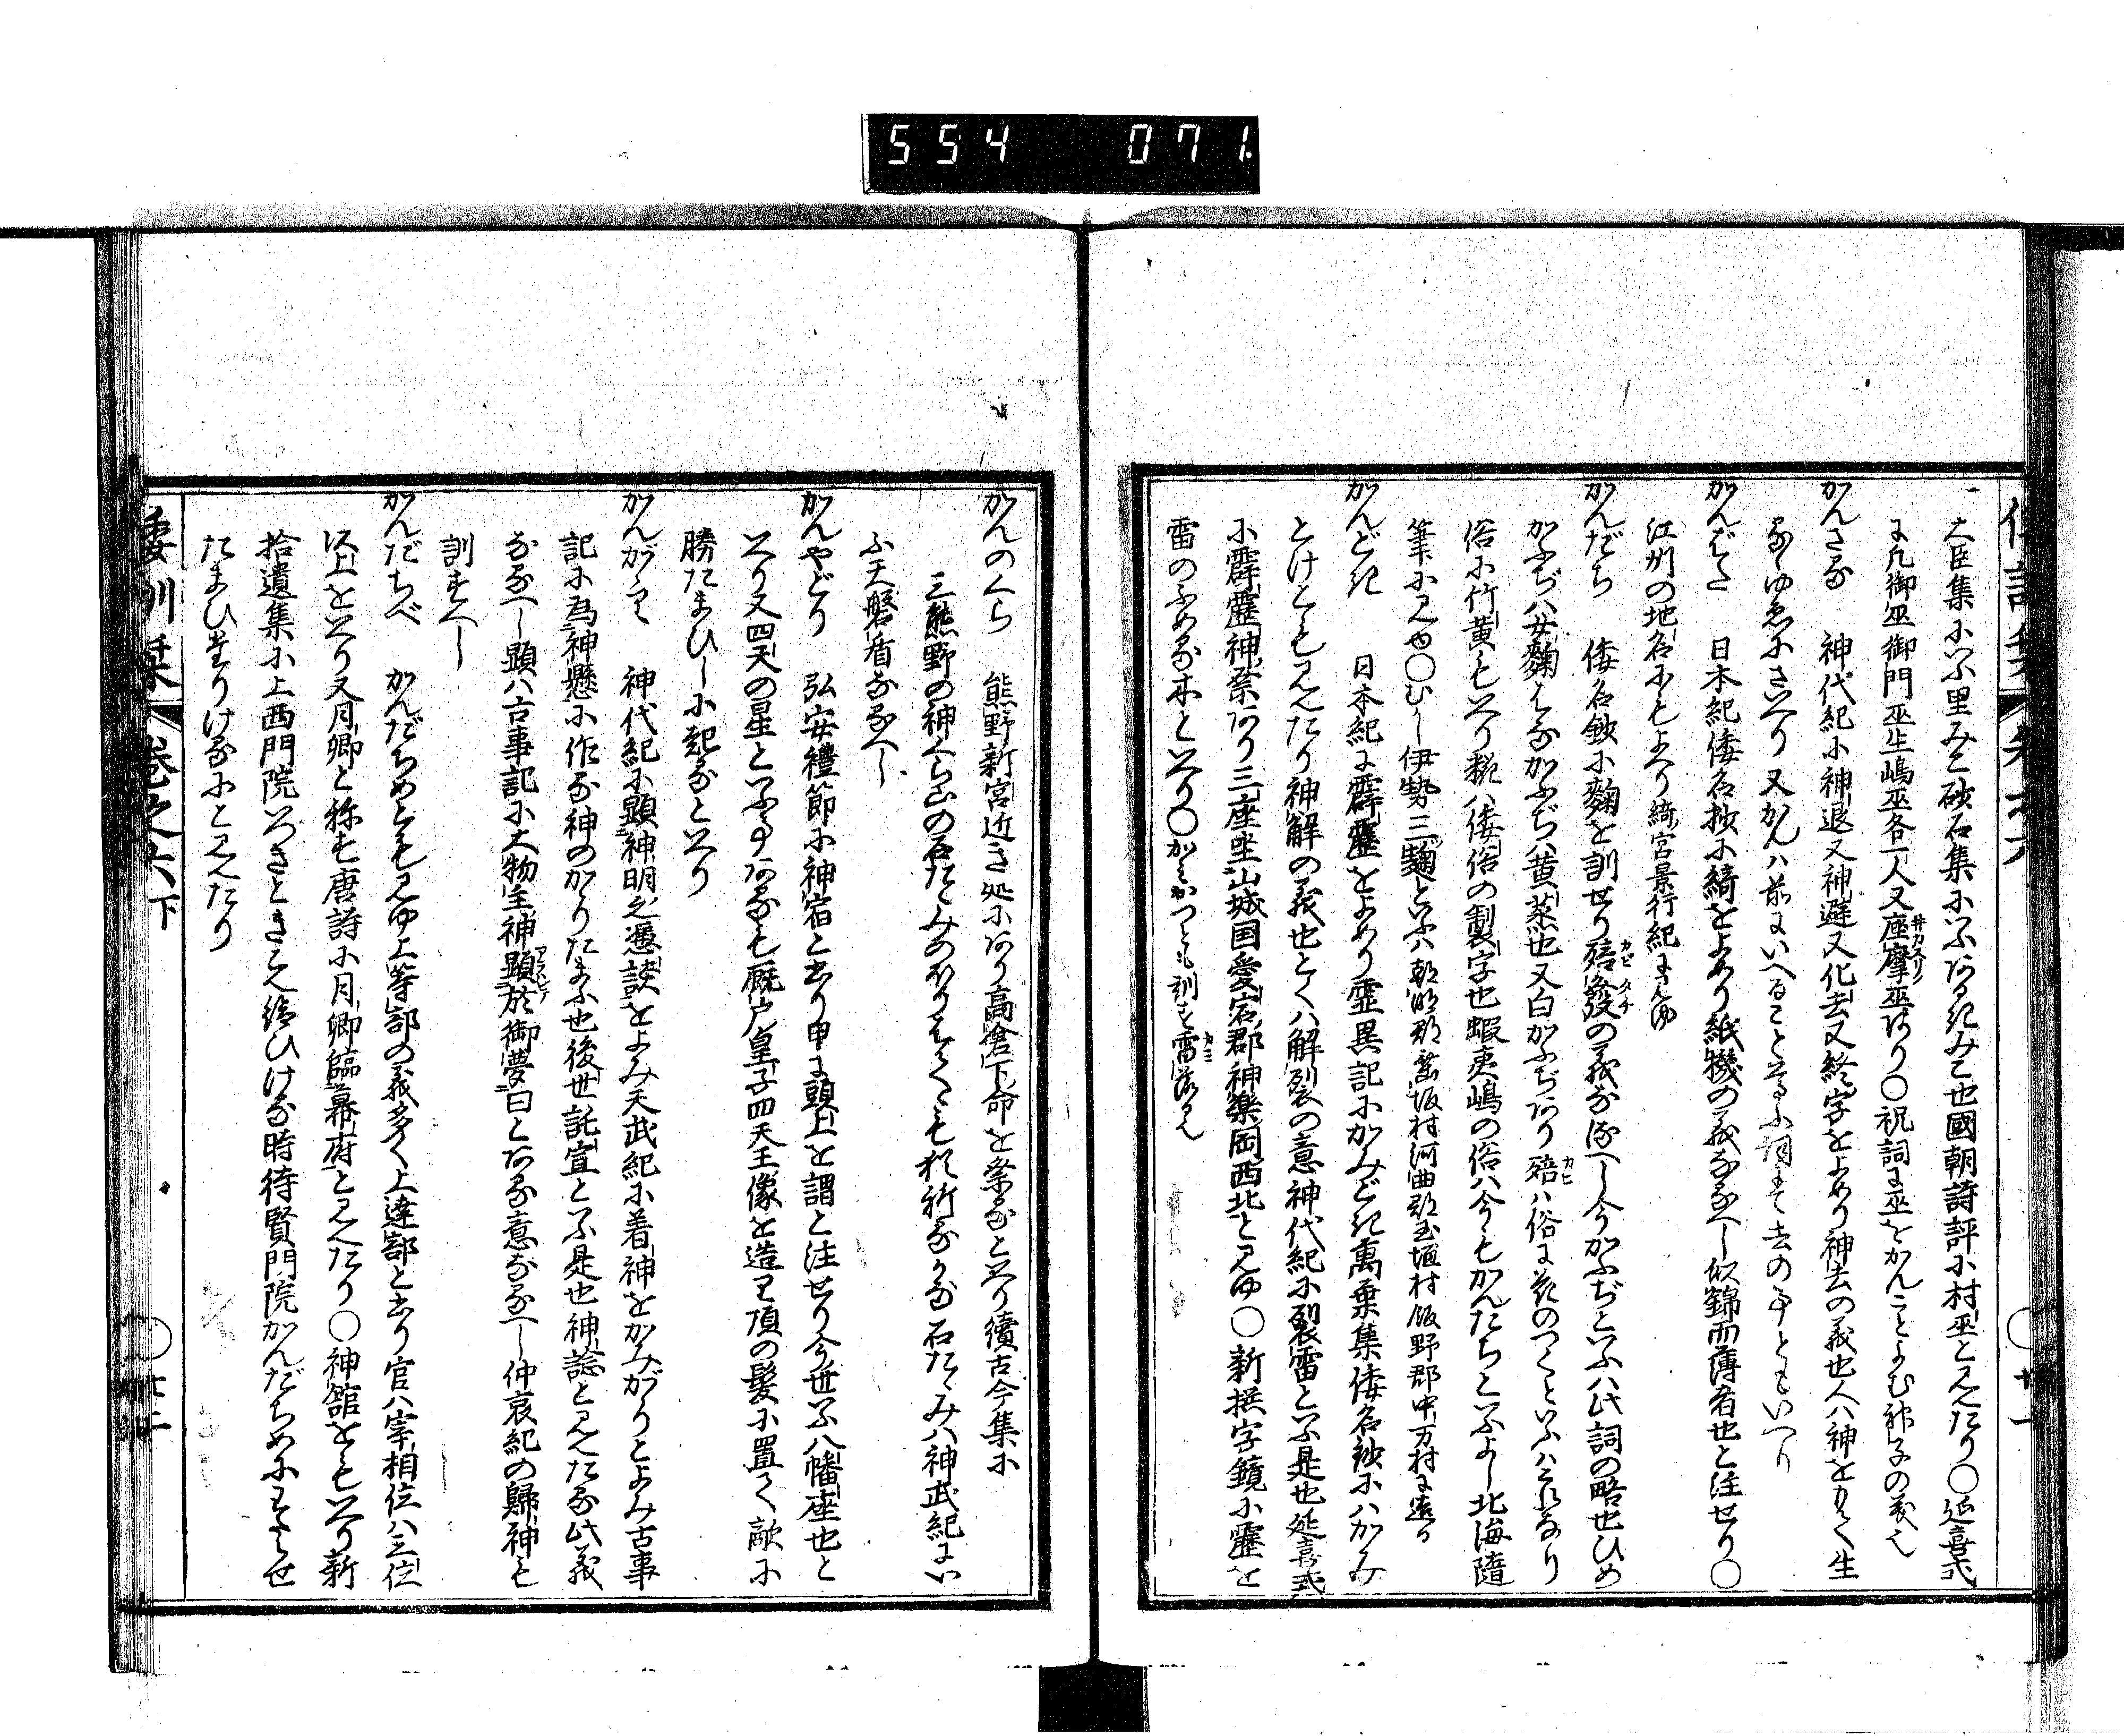 554 071.
大臣集にいふ里みこ砂石集にいふあるきみこ也國朝詩評に村巫と見えたり〇延喜式
に凡御巫御門巫生嶋巫各一人又座摩巫あり〇祝詞に巫をかんことよむ神子の義也
かんさる 神代紀に神退又神避又化去又終字をよめり神去の義也人ハ神をもて生
るゝゆゑにさいへり又かんハ前にいへることきに詞にて去の事ともいへり
かんばた 日本紀倭名抄に綺をよめり紙機の義なるへし似錦而薄者也と注せり〇
江州の地名にもよへり綺宮景行紀に見ゆ
かんだち 倭名鈔に麹を訓せり殕發の義なるへし今かふぢといふハ此詞の略也ひめ
かふぢハ女麹もるかふぢハ黄蒸也又白かふぢあり殕ハ俗に花のつくといふハこれなり
俗に竹黄もいへり糀ハ倭俗の製字也蝦夷嶋の俗ハ今もかんたちといふよし北海随
筆に見ゆ〇むかし伊勢三麹といふハ朝明郡 坂村河曲郡玉垣村飯野郡中万村に造る
かんどき 日本紀に霹靂をよめり霊異記にかみどき萬葉集倭名鈔にハかみ
とけとも見えたり神解の義也とくハ解裂の意神代紀に裂雷といふ是也延喜式
に霹靂神祭あり三座坐山城国愛宕郡神樂岡西北と見ゆ〇新撰字鏡に靂を
雷のふめる木といへり〇かみおつとも訓す雷落也
倭訓栞 巻之六 〇廿一
かんのくら 熊野新宮近き処にあり高倉下命を祭ると​いへり續古今集に
三熊野の神くら山の石たゝみのほりはてゝも猶祈るかな石たゝみハ神武紀にい
ふ天磐盾なるへし
かんやどり 弘安禮節に神宿と書り甲に頭上を謂と注せり今世いふ八幡座也と
いへり又四天の星といふ事あるも厩戸皇子四天王像を造りて頂の髪に置て敵に
勝たまひしに起ると​いへり
かんがゝり 神代紀に顯神明之憑談をよみ天武紀に着神をかみがゝりとよみ古事
記に為神懸に作る神のかゝりたまふ也後世託宣といふ是也神諗と見えたる此義
なるへし顯ハ古事記に大物主神顯於御夢曰とある意なるへし仲哀紀の歸神も
訓すへし
かんだちべ かんだちめとも見ゆ上等部の義多く上達部と書り官ハ宰相位ハ三位
以上をいへり又月卿と称す唐詩に月卿臨幕府と見えたり〇神舘をもいへり新
拾遺集に上西門院いつきときこえ給ひける時待賢門院かんだちめにまゐらせ
たまひ​たりけるにと見えたり
倭訓栞 巻之六下 〇廿二